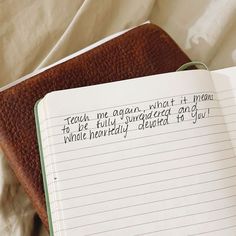 Teach me again, what it means
to be fully surrendered and
wholeheartedly devoted to you!